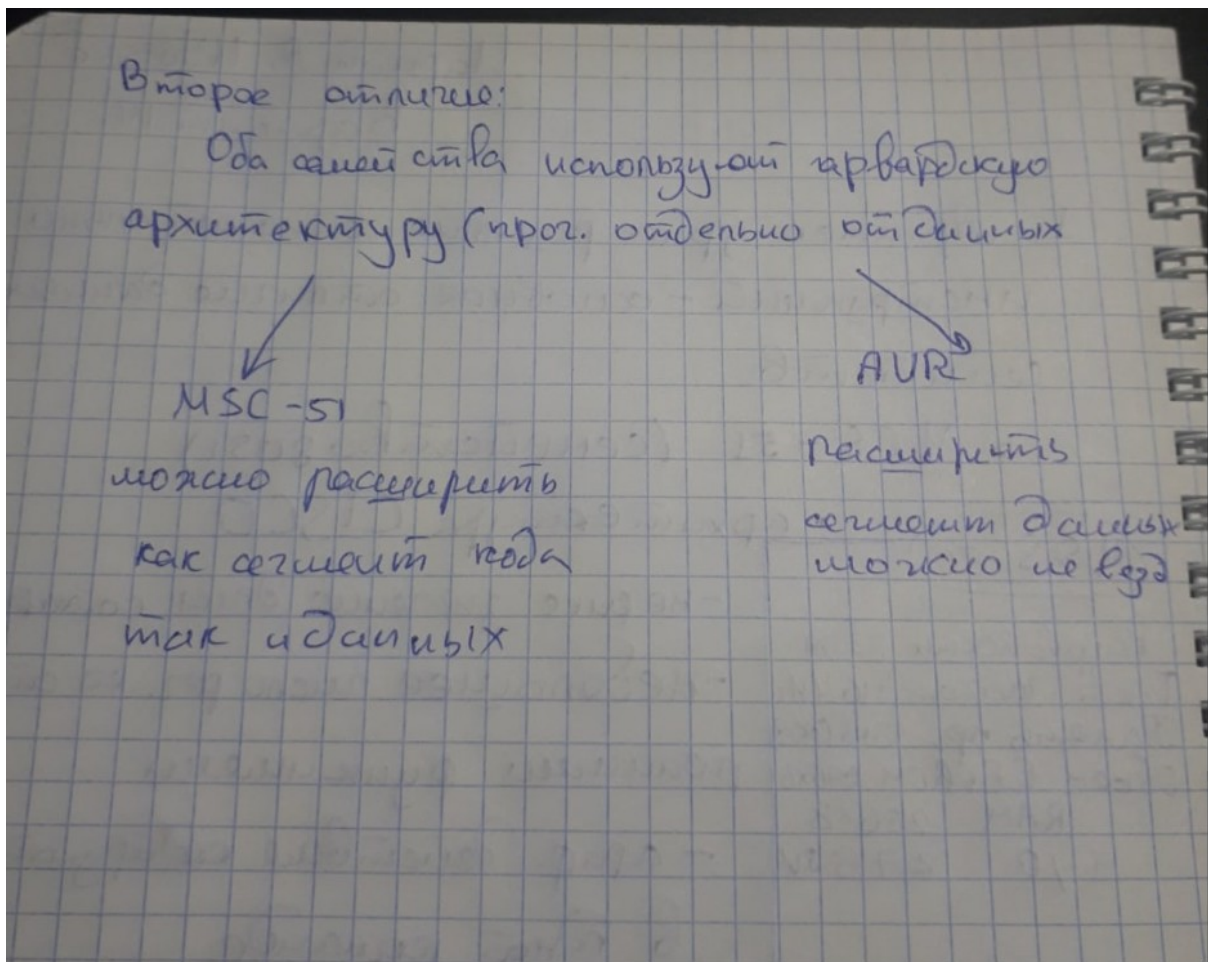 Второе отличие:
Оба семейства используют гарвардскую
архитектуру (прог. отдельно от данных
MSC-51
AVR
можно расширить
как сегмент кода
так и данных
Расширить
сегмент данных
можно не везд